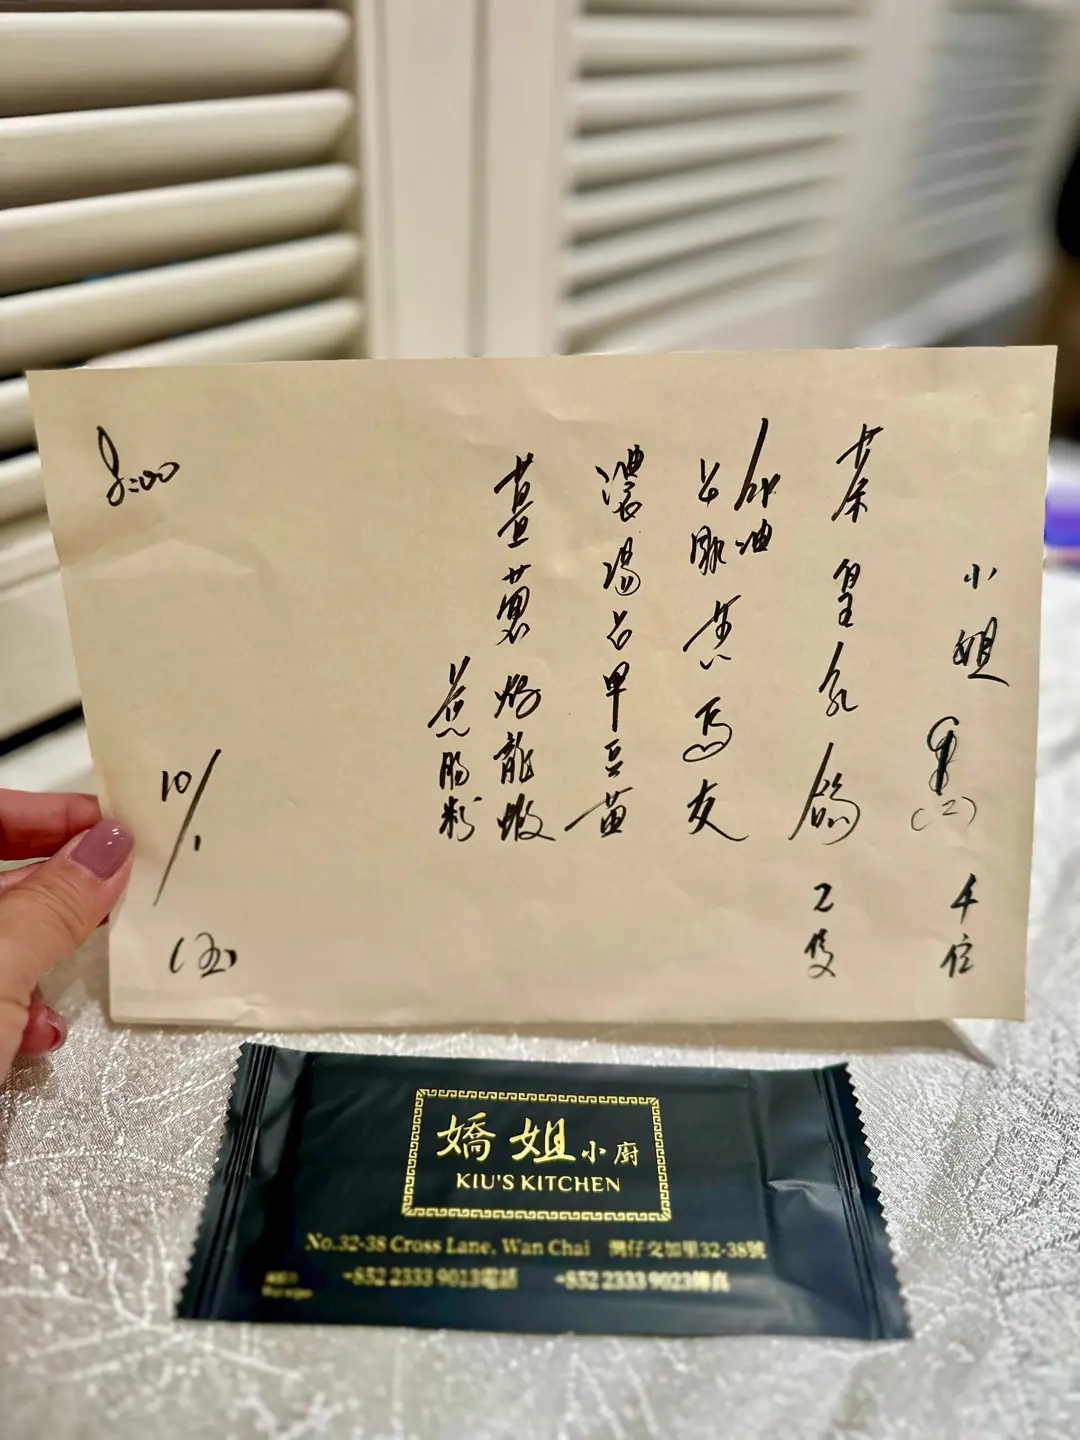 小姐
(2)
4位
茶皇乳鴿 2隻
油
馬友
濃湯石甲豆苗
薑蔥焗龍蝦
腸粉
8:00
10/1
(五)
嬌姐小廚
KIU'S KITCHEN
No.32-38 Cross Lane, Wan Chai 灣仔交加里32-38號
+852 2333 9013電話 +852 2333 9023傳真